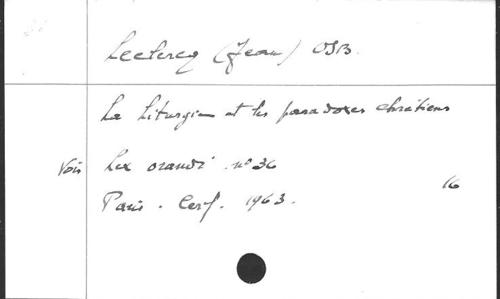 Leclercq (Jean) OSB.
La Liturgie et les paradoxes chrétiens
Voir Lex orandi n° 36
16
Paris. Cerf. 1963.